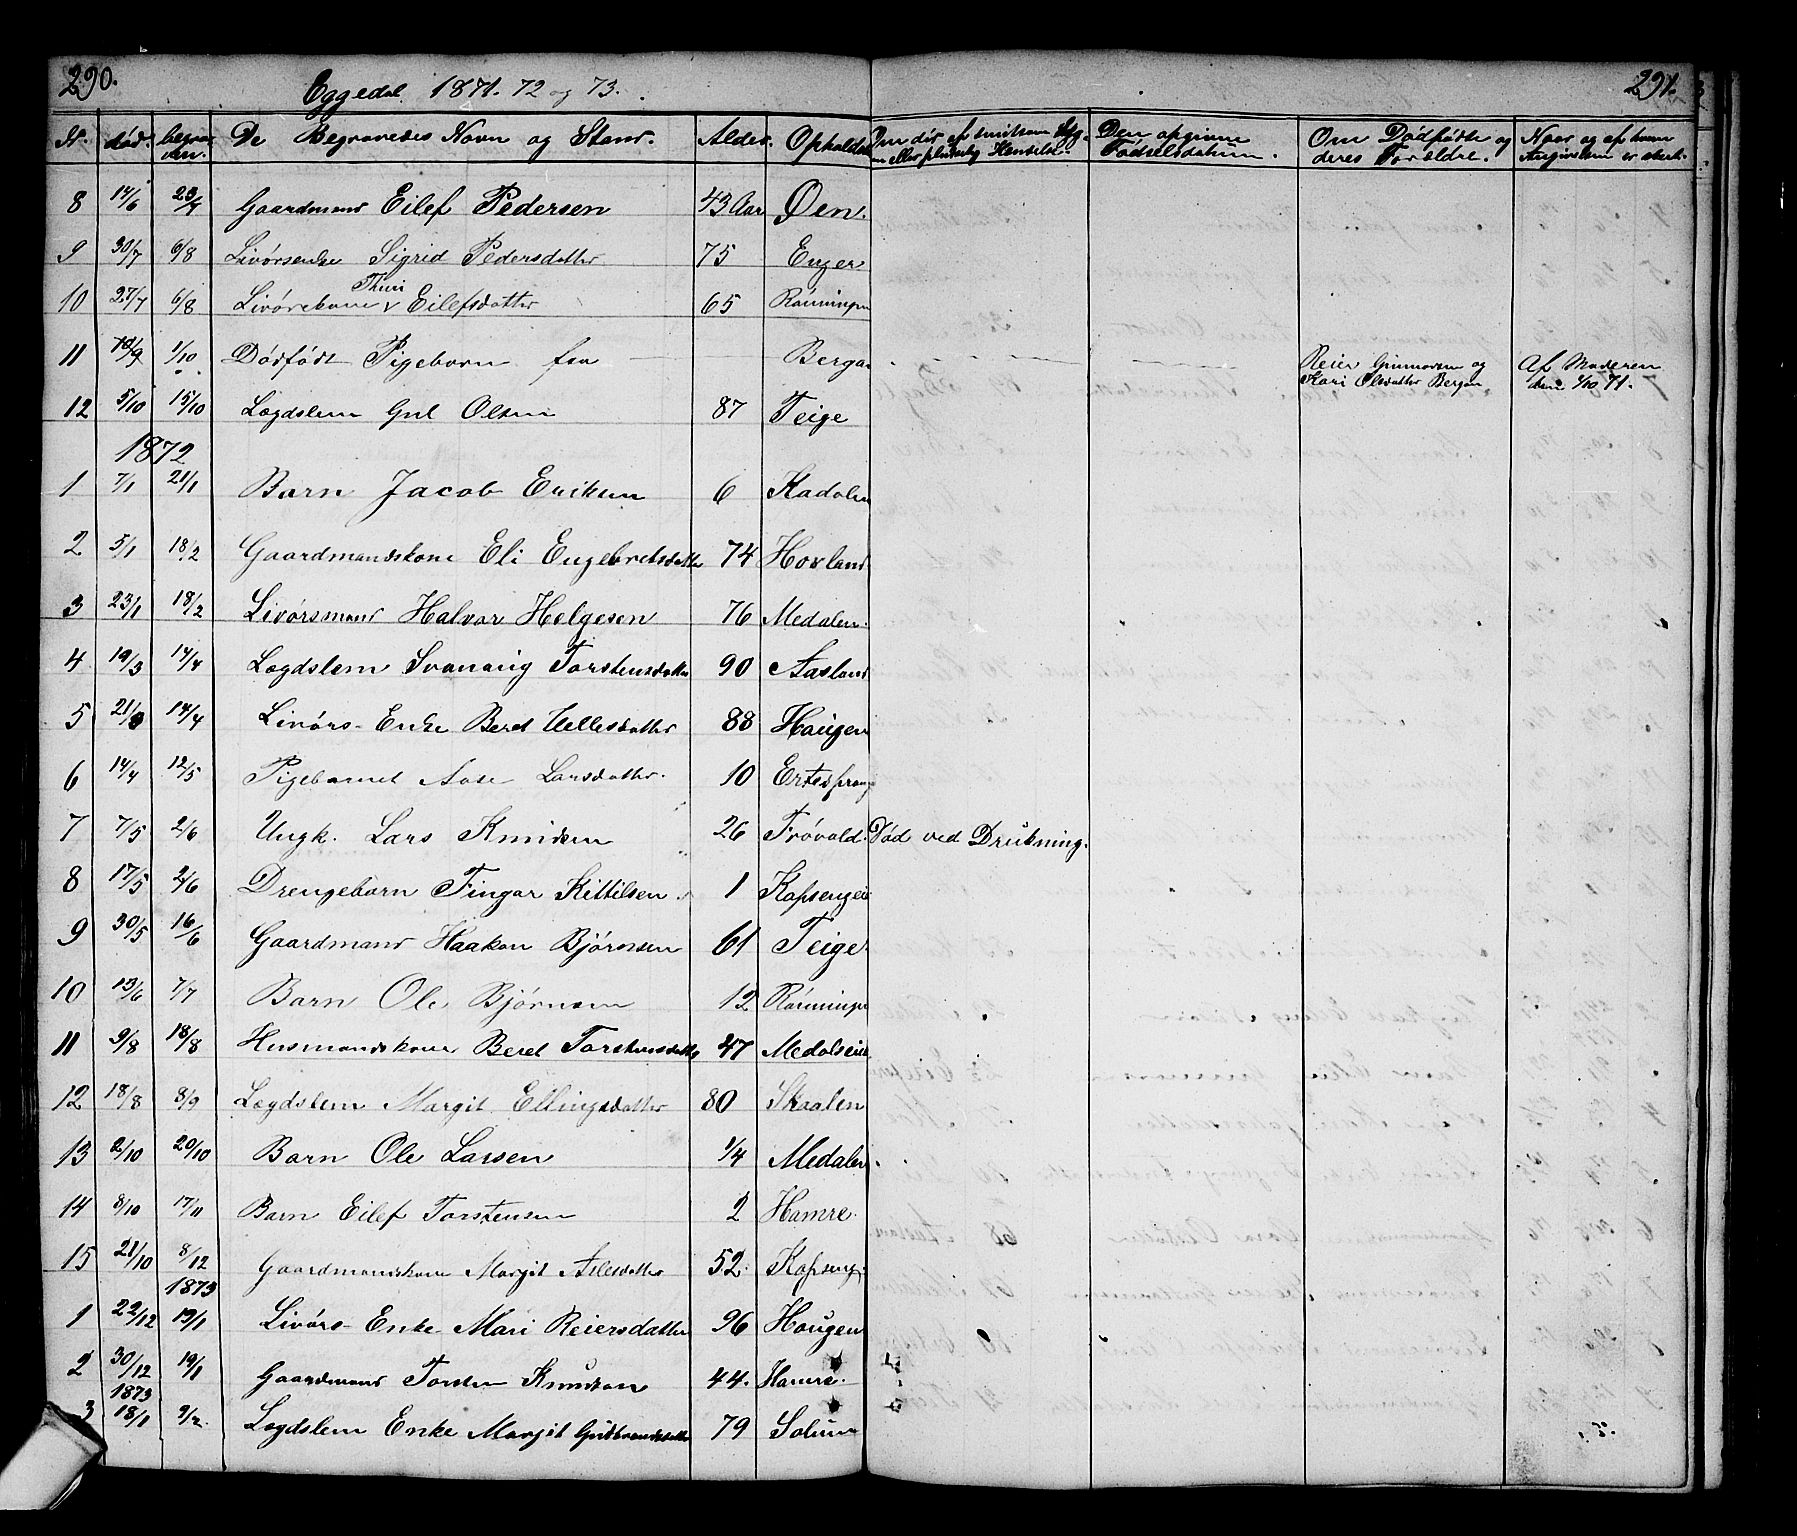 290. Eggedal 1871. 72 og 73. 291.
Nr. død. begraven. De Begravedes Navn og Stand. Alder. Opholds Om død af smitsom Syg- Den opgivne Fødselsdatum. Om Dødfødte og deres Forældre. Naar og af hvem
8 14/6 23/7 Gaardmand Eilef Pedersen 43 Aar Øen.
9 30/7 6/8 Livørsenke Sigrid Pedersdatter 75 Enger
10 27/7 6/8 Livørskone Thuri Eilefsdatter 65 Rønningen
11 19/9 1/10 Dødfødt Pigebarn fra Bergan Reier Gunnarsen og Kari Olsdatter Bergan Af Moderen den 1/10 71.
12 5/10 15/10 Lægdslem Gul Olsen 87 Teige
1872
1 7/1 21/1 Barn Jacob Eriksen 6 Kadalen
2 5/1 18/2 Gaardmandskone Eli Engebretsdatter 74 Hovland
3 23/1 18/2 Livørsmand Halvor Helgesen 76 Medalen.
4 19/3 14/4 Lægdslem Svanaug Torstensdatter 90 Aasland
5 21/3 14/4 Livørs-Enke Beret Uellesdatter 88 Haugen
6 14/4 12/5 Pigebarnet Aase Larsdatter. 10
7 7/5 2/6 Ungk. Lars Knudsen 26 Frøvold. Død ved Drukning.
8 17/5 2/6 Drengebarn Fingar Kittilsen 1 Kopsengeie
9 30/5 16/6 Gaardmand Haakon Bjørnsen 61 Teige.
10 13/6 7/7 Barn Ole Bjørnsen 12 Rønningen
11 9/8 18/8 Husmandskone Beret Torstensdatter 47 Medalseie
12 18/8 8/9 Lægdslem Margit Ellingsdatter 80 Skaalen
13 2/10 20/10 Barn Ole Larsen 1/4 Medalen
14 8/10 17/11 Barn Eilef Torstensen 2 Hamre.
15 21/10 8/12 Gaardmandskone Margit Aslesdatter 52. Kopseng.
1873
1 22/12 19/1 Livørs-Enke Mari Reiersdatter 96 Haugen
2 30/12 19/1 Gaardmand Torsten Knudsen 44. Hamre.
1873
3 18/1 9/2. Lægdslem Enke Margit Gulbrandsdatter 79 Solum